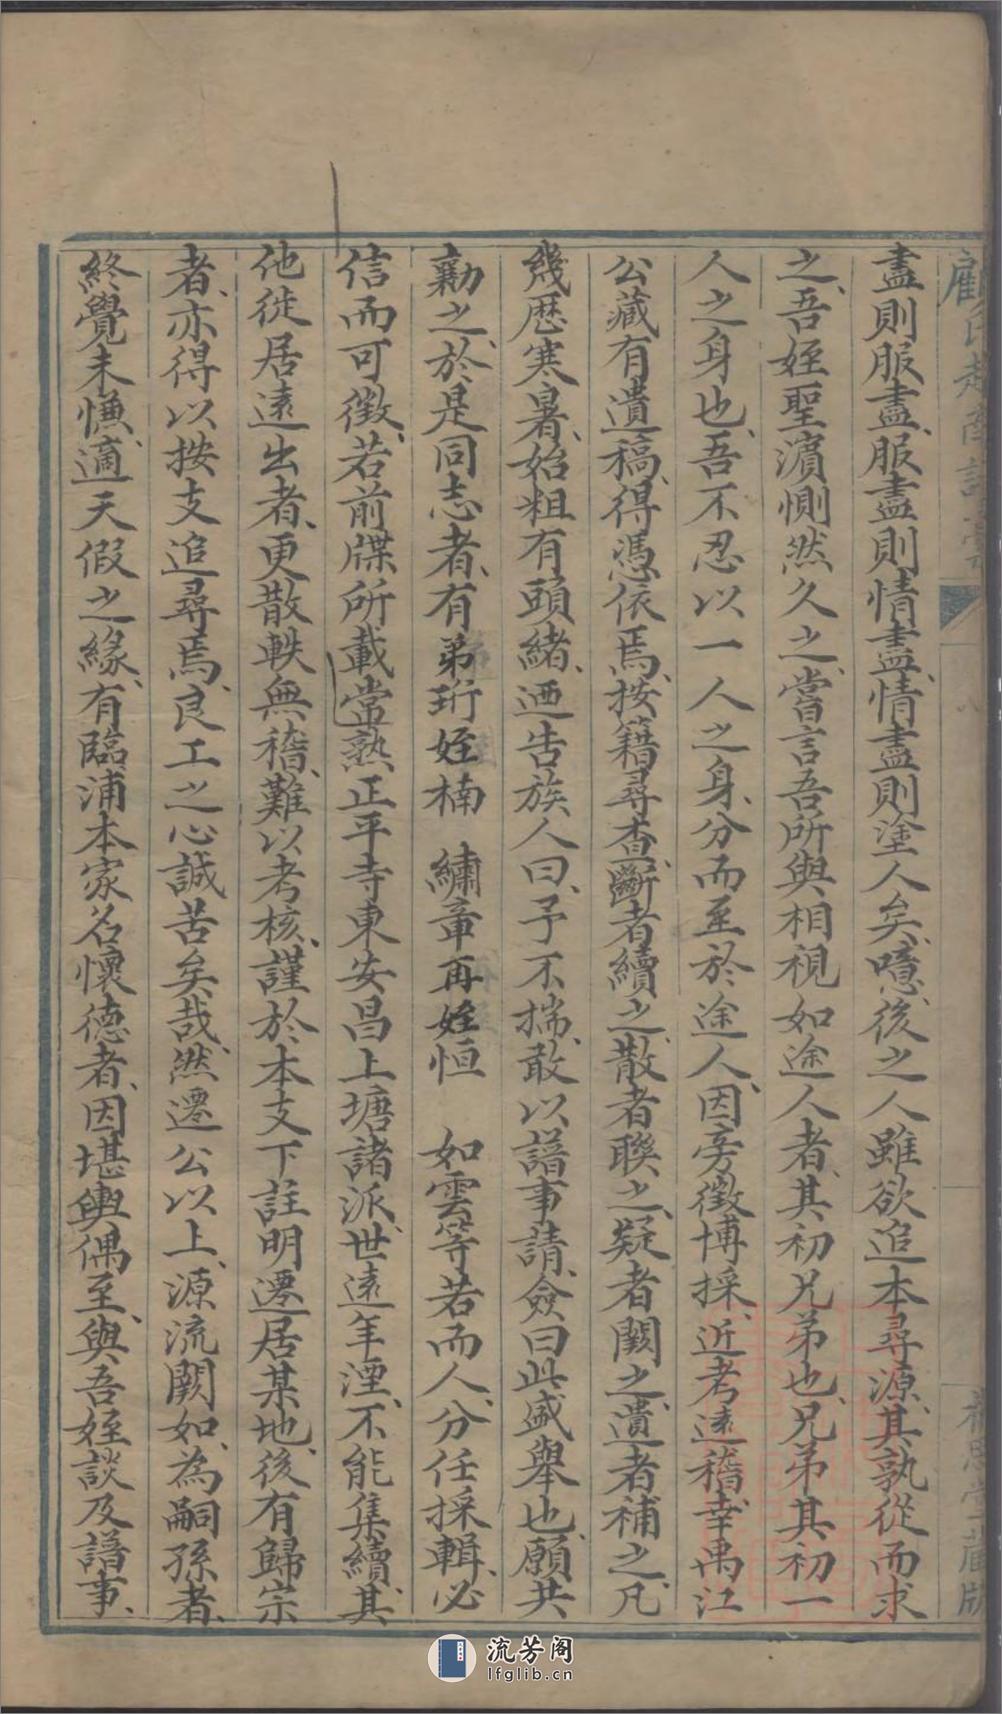 盡則服盡、服盡則情盡、情盡則塗人矣、噫、後之人雖欲追本尋源、其孰從而求
之、吾姪聖濵惻然久之、嘗言吾所與相視如途人者、其初兄弟也、兄弟其初一
人之身也、吾不忍以一人之身、分而至於途人、因旁徵博採、近考遠稽、幸禹江
公藏有遺稿、得憑依焉、按籍尋查、斷者續之、散者聯之、疑者闕之、遺者補之、凡
幾歷寒暑、始粗有頭緒、迺告族人曰、予不揣、敢以譜事請、僉曰此盛舉也、願共
勷之、於是同志者、有弟珩姪楠 繡章再姪恒 如雲等若而人、分任採輯、必
信而可徵、若前牒所載常熟正平寺東安昌上塘諸派、世遠年湮、不能集續、其
他徙居遠出者、更散軼無稽、難以考核、謹於本支下註明遷居某地、後有歸宗
者、亦得以按支追尋焉、良工之心誠苦矣哉、然遷公以上、源流闕如、為嗣孫者、
終覺未慊、適天假之緣、有臨浦本家名懷德者、因堪輿偶至、與吾姪談及譜事、
顧氏
藏版
流芳阁
lfglib.cn